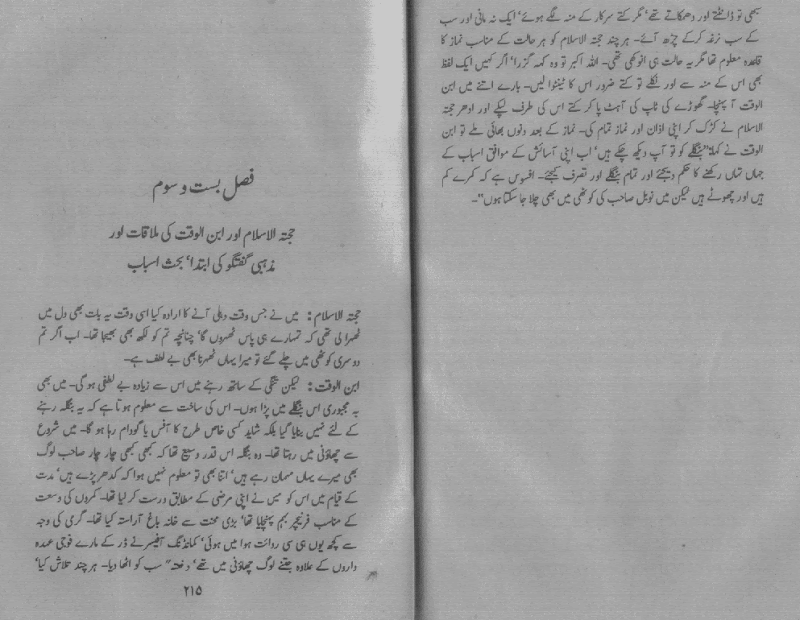 سبھی تو ڈانٹتے اور دھمکاتے تھے‘ مگر کتے سرکار کے منہ لگے ہوئے‘ ایک نہ مانی اور سب
کے سب نرغہ کرکے چڑھ آئے۔ ہر چند حجتہ الاسلام کو ہر حالت کے مناسب نماز کا
قاعدہ معلوم تھا مگر یہ حالت ہی انوکھی تھی۔ اللہ اکبر تو وہ کہہ گزرا‘ اگر کہیں ایک لفظ
بھی اس کے منہ سے اور نکلے تو کتے ضرور اس کا ٹینٹوا لیں۔ بارے اتنے میں ابن
الوقت آ پہنچا۔ گھوڑے کی ٹاپ کی آہٹ پا کر کتے اس کی طرف لپکے اور ادھر حجتہ
الاسلام نے کڑک کر اپنی اذان اور نماز تمام کی۔ نماز کے بعد دنوں بھائی ملے تو ابن
الوقت نے کہا:”بنگلے کو تو آپ دیکھ چکے ہیں‘ اب اپنی آسائش کے موافق اسباب کے
جہاں تہاں رکھنے کا حکم دیجئے اور تمام بنگلے اور تصرف کیجئے۔ افسوس ہے کہ کمرے کم
ہیں اور چھوٹے ہیں لیکن میں نوبل صاحب کی کوٹھی میں بھی چلا جا سکتا ہوں“۔
فصل بست و سوم
حجتہ الاسلام اور ابن الوقت کی ملاقات اور
مذہبی گفتگو کی ابتدا‘ بحث اسباب
حجتہ الاسلام: میں نے جس وقت دہلی آنے کا ارادہ کیا اسی وقت یہ بات بھی دل میں
ٹھہرا لی تھی کہ تمہارے ہی پاس ٹھہروں گا‘ چنانچہ تم کو لکھ بھی بھیجا تھا۔ اب اگر تم
دوسری کوٹھی میں چلے گئے تو میرا یہاں ٹھہرنا بھی بے لطف ہے۔
ابن الوقت: لیکن تنگی کے ساتھ رہنے میں اس سے زیادہ بے لطفی ہو گی۔ میں بھی
بہ مجبوری اس بنگلے میں پڑا ہوں۔ اس کی ساخت سے معلوم ہوتا ہے کہ یہ بنگلہ رہنے
کے لئے نہیں بنایا گیا بلکہ شاید کسی خاص طرح کا آفس یا گودام رہا ہو گا۔ میں شروع
سے چھاؤنی میں رہتا تھا۔ وہ بنگلہ اس قدر وسیع تھا کہ کبھی کبھی چار چار صاحب لوگ
بھی میرے یہاں مہمان رہے ہیں‘ اتنا بھی تو معلوم نہیں ہوا کہ کدھر پڑے ہیں‘ مدت
کے قیام میں اس کو میں نے اپنی مرضی کے مطابق درست کر لیا تھا۔ کمروں کی وسعت
کے مناسب فرنیچر بہم پہنچایا تھا‘ بڑی محنت سے خانہ باغ آراستہ کیا تھا۔ گرمی کی وجہ
سے کچھ یوں ہی سی ردائت ہوا میں ہوئی‘ کمانڈنگ آفیسر نے ڈر کے مارے فوجی عمدہ
داروں کے علاوہ جتنے لوگ چھاؤنی میں تھے‘ دفعتہ” سب کو اٹھا دیا۔ ہر چند تلاش کیا‘
۲۱۵